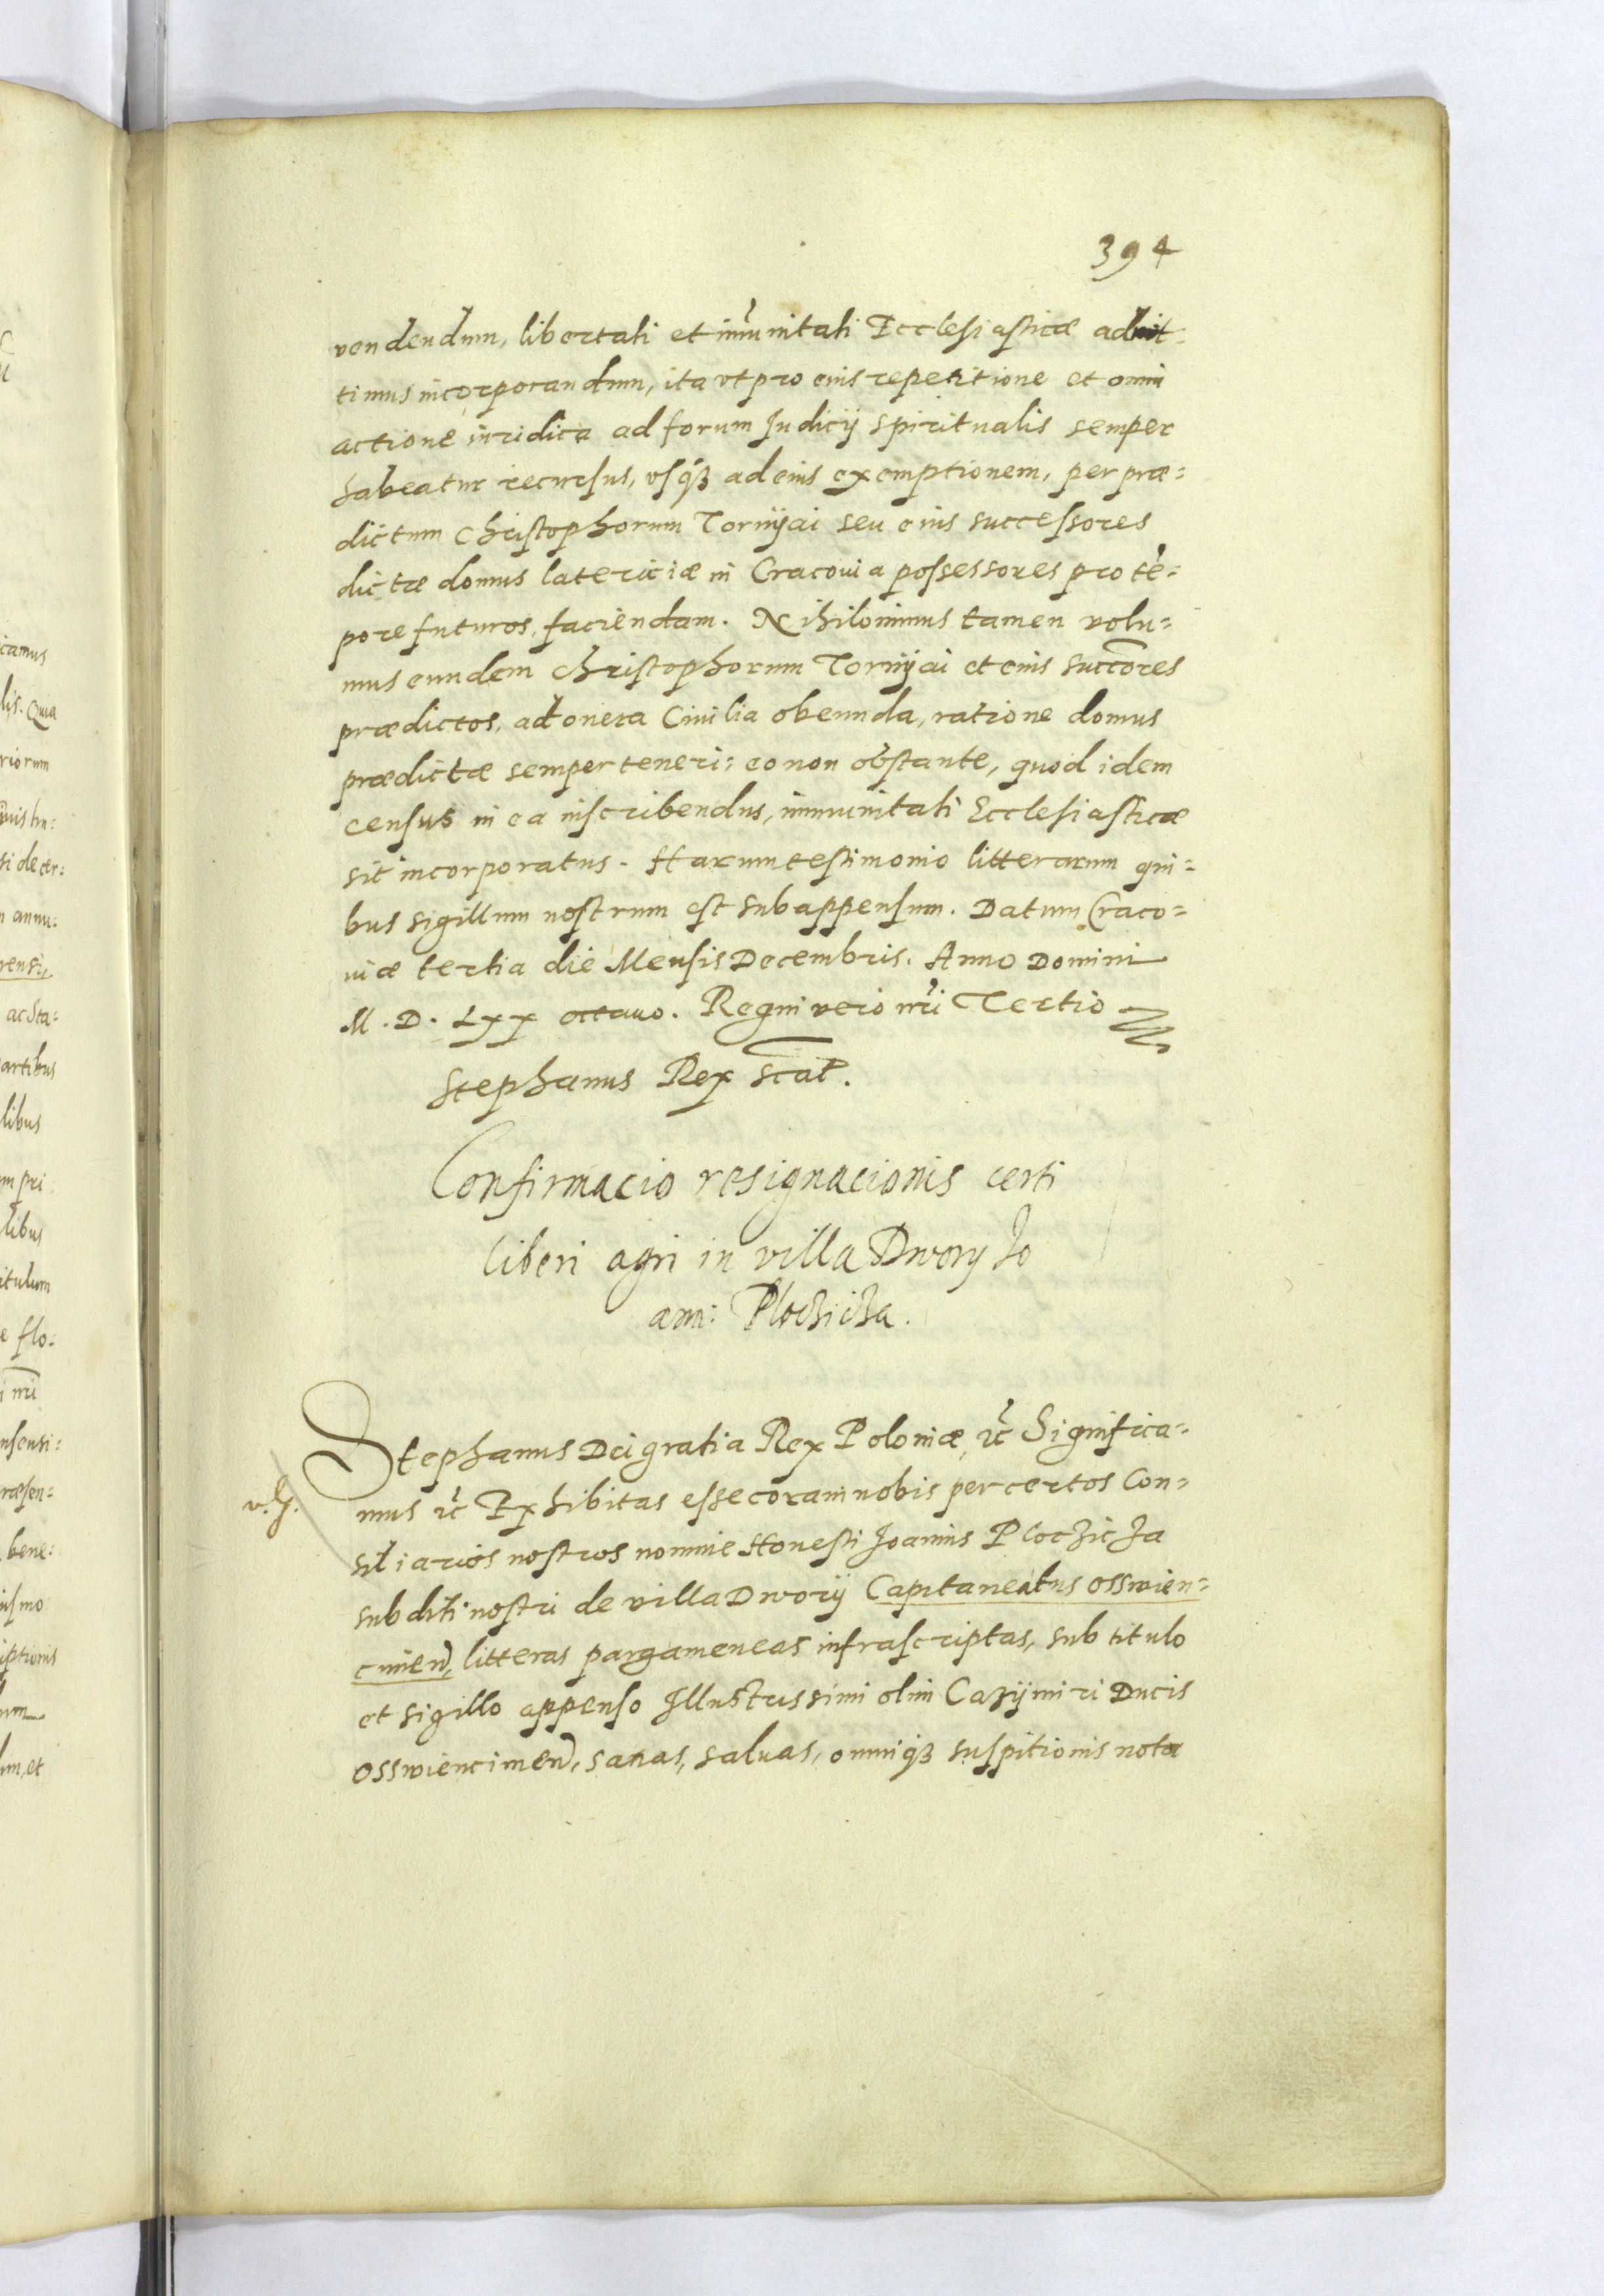 394
vendendum, libertati et im̃unitati Ecclesiasticæ admit-
timus incorporandum, ita vt pro eius repetitione et omni
actione iuridica ad forum Iudicij spiritualis semper
habeatur recursus, vsq3 ad eius exemptionem, per præ=
dictum Christophorum Tornijai seu eius successores
dictæ domus latericiæ in Cracouia possessores pro tẽ=
pore futuros, faciendam. Nihilominus tamen volu=
mus eundem Christophorum Tornijai et eius succõres
prædictos, ad onera Ciuilia obeunda, ratione domus
prædictæ semper teneri: eo non obstante, quod idem
census in ea inscribendus, immunitati Ecclesiasticæ
sit incorporatus. Harum testimonio litterarum qui=
bus sigillum nostrum est subappensum. Datum Craco=
uiæ tertia die Mensis Decembris. Anno Domini
M. D. Lxx octauo. Regni vero nr̃i Tertio
Stephanus Rex sc̃at.
Confirmacio resignacionis certi
liberi agri in villa Dwory Jo
anni: Ploczicza.
Stephanus Dei gratia Rex Poloniæ, ꝛc̃ Significa=
mus ꝛc̃ Exhibitas esse coram nobis per certos Con=
siliarios nostros nomine Honesti Joannis Ploczicza
subditi nostri de villa Dworij Capitaneatus osswien=
cimen̄, litteras pargameneas infrascriptas, sub titulo
et sigillo appenso Illustrissimi olim Cazijmiri Ducis
osswiencimen̄, sanas, saluas, omniq3 suspitionis nota